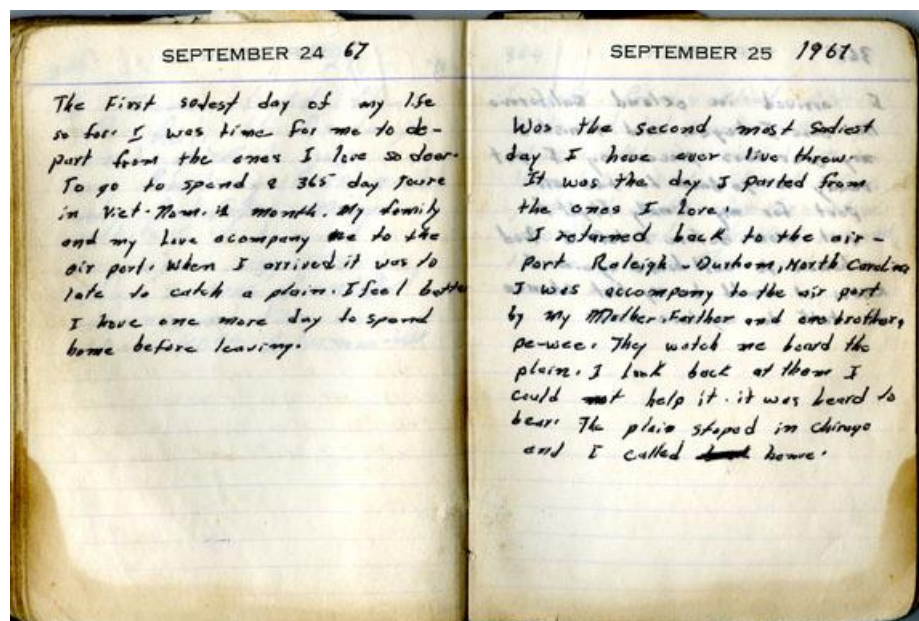 SEPTEMBER 24 67
The First sadest day of my life
so for. I was time for me to de-
part from the ones I love so dear.
To go to spend a 365 day toure
in Viet-Nam. 12 month. My family
and my Love acompany me to the
air port. When I arrived it was to
late to catch a plain. I feel better
I have one more day to spend
home before leaving.
SEPTEMBER 25 1967
Was the second most sadiest
day I have ever live threw.
It was the day I parted from
the ones I love.
I returned back to the air-
port Raleigh-Durham, North Carolina
I was accompany to the air port
by my Mother, Farther and one brother,
pe-wee. They watch me board the
plain. I look back at them I
could not help it. it was heard to
bear. The plain stoped in chicago
and I called home.